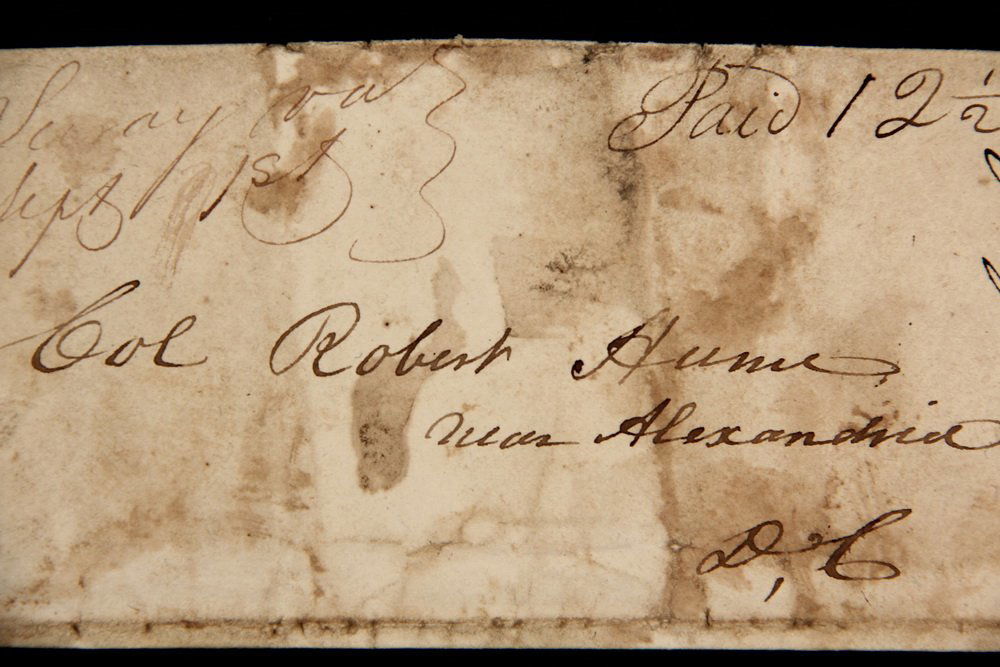 Surray va
Sept 1st
Paid 12 1/2
Col Robert Hume
near Alexandria
D, C